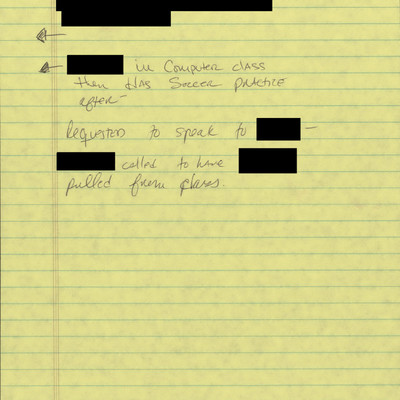 in Computer class
then has Soccer practice
after-
Requested to speak to -
called to have
pulled from class.